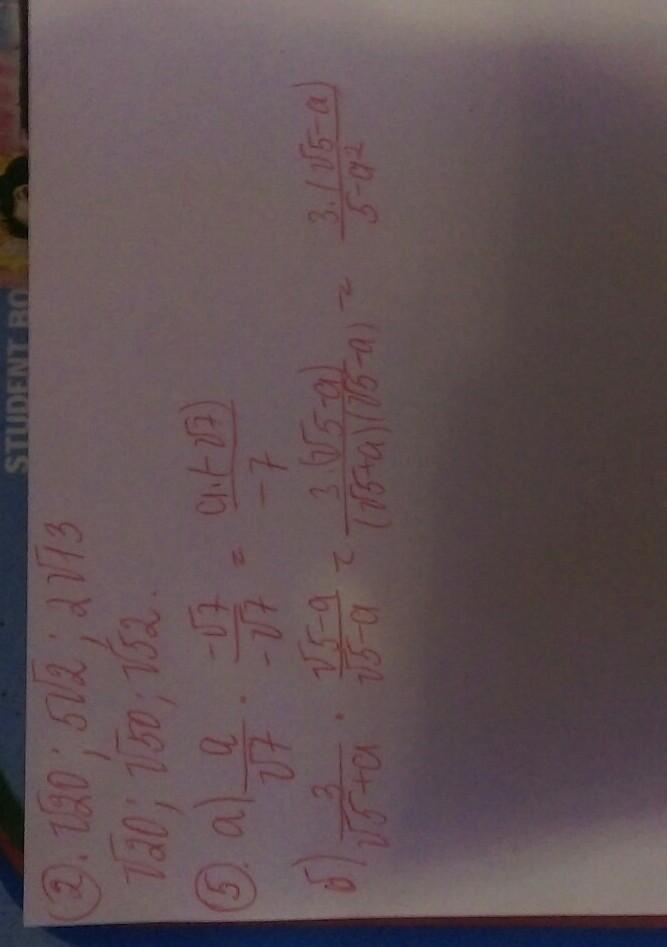 STUDENT BO
②. √20; 5√2; 2√13
√20; √50; √52.
⑤. а) a/√7 · -√7/-√7 = a·(-√7)/-7
б) 3/(√5+a) · (√5-a)/(√5-a) = 3(√5-a)/((√5+a)(√5-a)) = 3·(√5-a)/(5-a²)